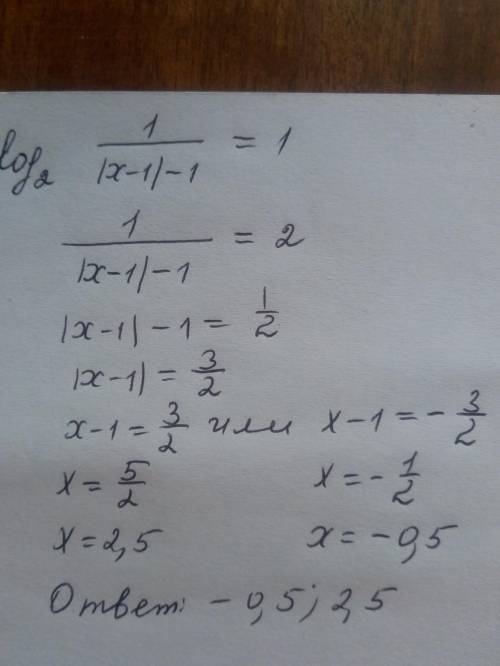 log₂ 1/(|x-1|-1) = 1
1/(|x-1|-1) = 2
|x-1|-1 = 1/2
|x-1| = 3/2
x-1 = 3/2 или x-1 = -3/2
x = 5/2 x = -1/2
x = 2,5 x = -0,5
Ответ: -0,5; 2,5